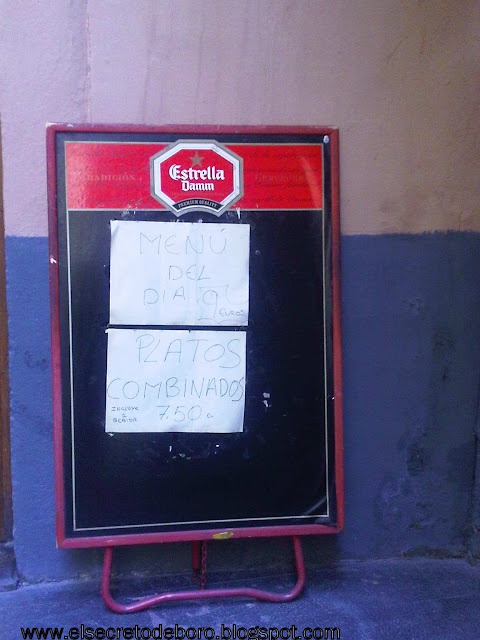 TRADICIÓN
Estrella
Damm
PREMIUM QUALITY
MENÚ
DEL
DIA 9
EUROS
PLATOS
COMBINADOS
INCLUYE
BEBIDA
7.50
www.elsecretodeboro.blogspot.com